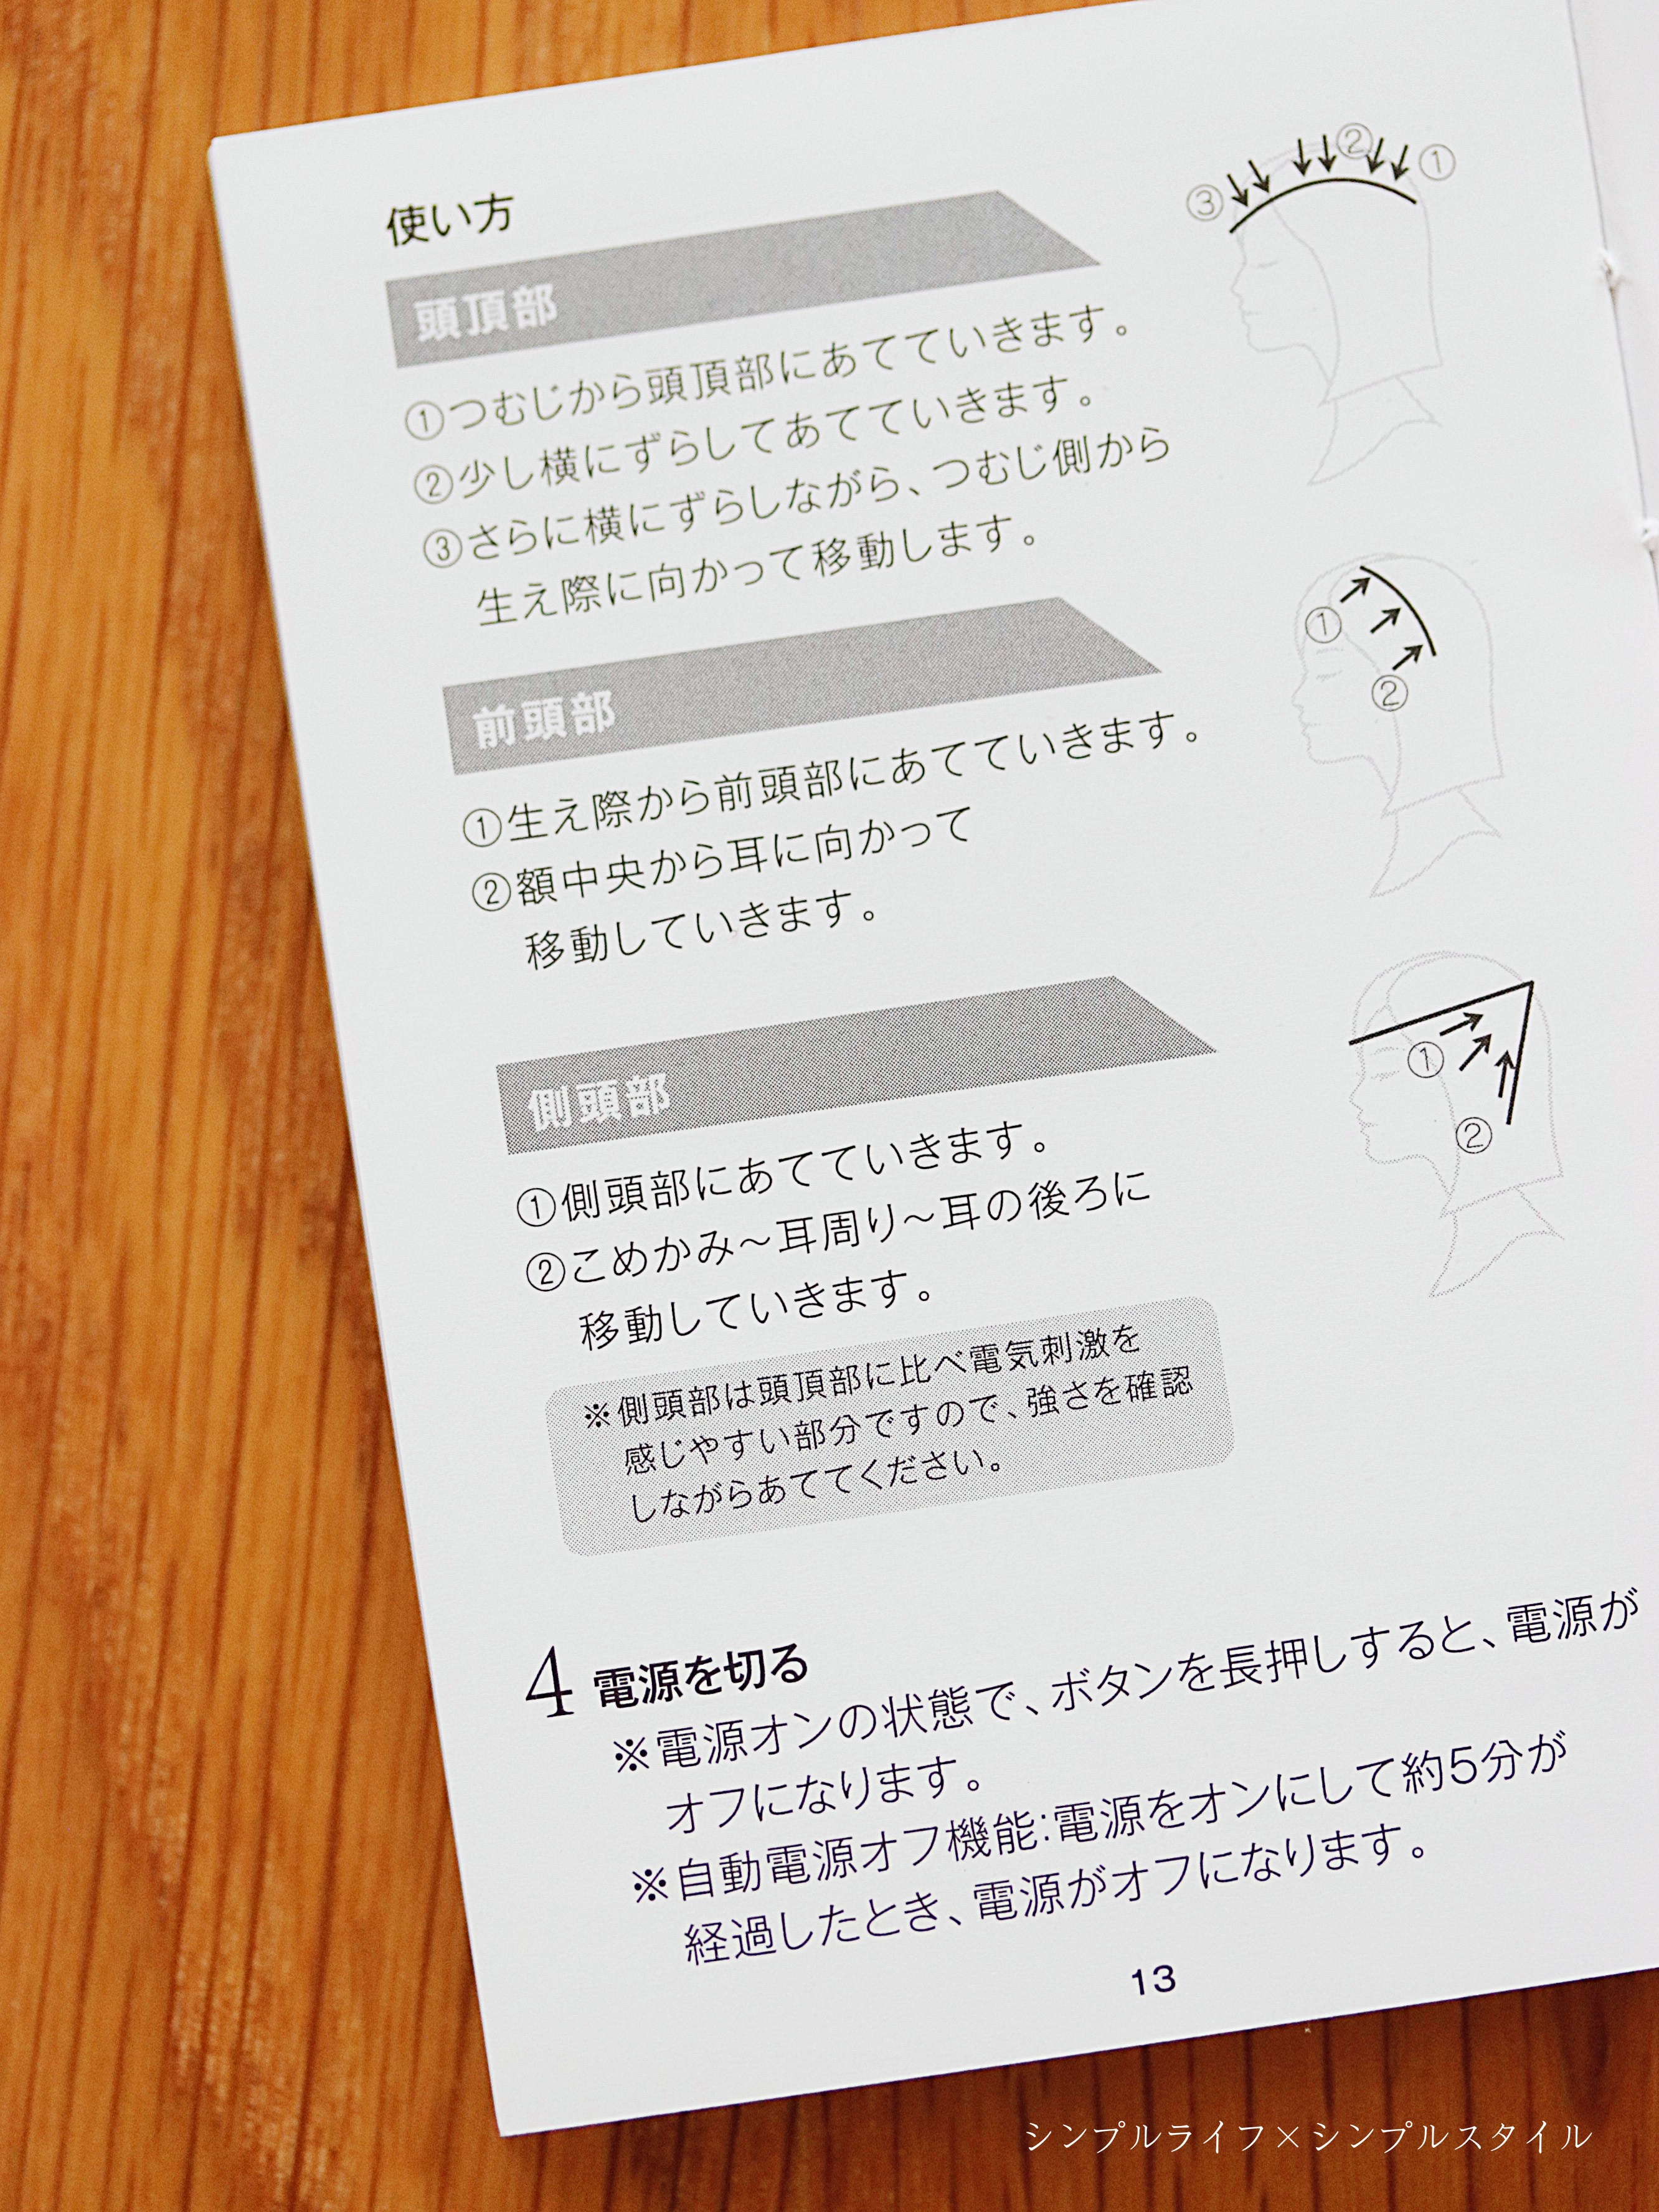 使い方
頭頂部
①つむじから頭頂部にあてていきます。
②少し横にずらしてあてていきます。
③さらに横にずらしながら、つむじ側から
生え際に向かって移動します。
③ ② ①
前頭部
①生え際から前頭部にあてていきます。
②額中央から耳に向かって
移動していきます。
①
②
側頭部
①側頭部にあてていきます。
②こめかみ～耳周り～耳の後ろに
移動していきます。
①
②
※側頭部は頭頂部に比べ電気刺激を
感じやすい部分ですので、強さを確認
しながらあててください。
4 電源を切る
※電源オンの状態で、ボタンを長押しすると、電源が
オフになります。
※自動電源オフ機能:電源をオンにして約5分が
経過したとき、電源がオフになります。
13
シンプルライフ×シンプルスタイル